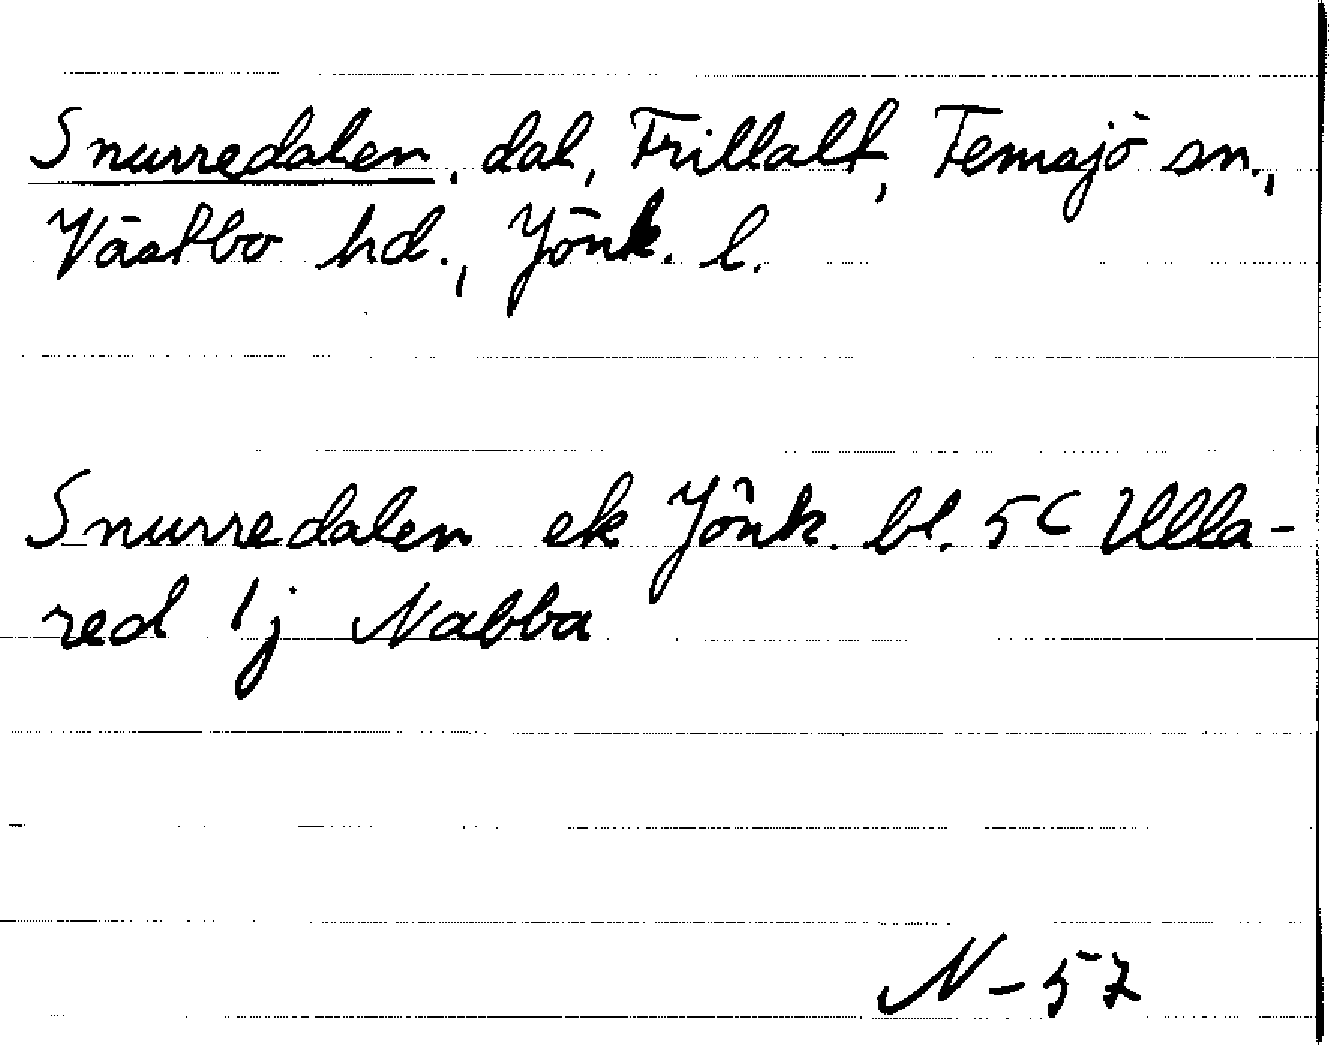 Snurredalen, dal, Frillalt, Femsjö sn.,
Västbo hd., Jönk. l.
Snurredalen ek Jönk. bl. 5C Ulla-
red 1j Nabba
N-57